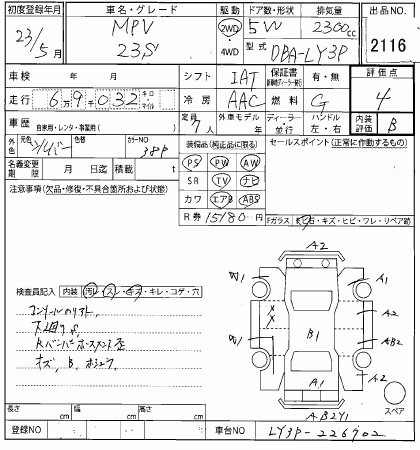 初度登録年月 車名・グレード 駆動 ドア数・形状 排気量 出品NO.
23/5月 MPV 23S 2WD・4WD 5W 2300cc 2116
型式 DBA-LY3P
車検 年 月 シフト IAT 保証書 有・無 評価点
走行 6万9千032 キロ マイル 冷房 AAC 燃料 G 4
車歴 自家用・レンタ・事業用( ) 定員 7人 外車モデル 年 ディーラー・並行 ハンドル 左・右 内装評価 B
外色 元色 シルバー 色替 カラーNO 38P
装備品(純正品に限る) セールスポイント(正常に作動するもの)
名義変更期限 月 日迄 積載 t
PS PW AW
SR TV ナビ
カワ エアB ABS
注意事項(欠品・修復・不具合箇所および状態)
R券 15180
Fガラス 石・キズ・ヒビ・ワレ・リペア跡
検査員記入 内装 汚レ・スレ・キズ・キレ・コゲ・穴
下廻りS
キズ、B、
A2
A1
A2
AB2
B1
A1
A2
スペア
AB2Y1
長さ cm 幅 cm 高さ cm
登録NO 車台NO LY3P-226902